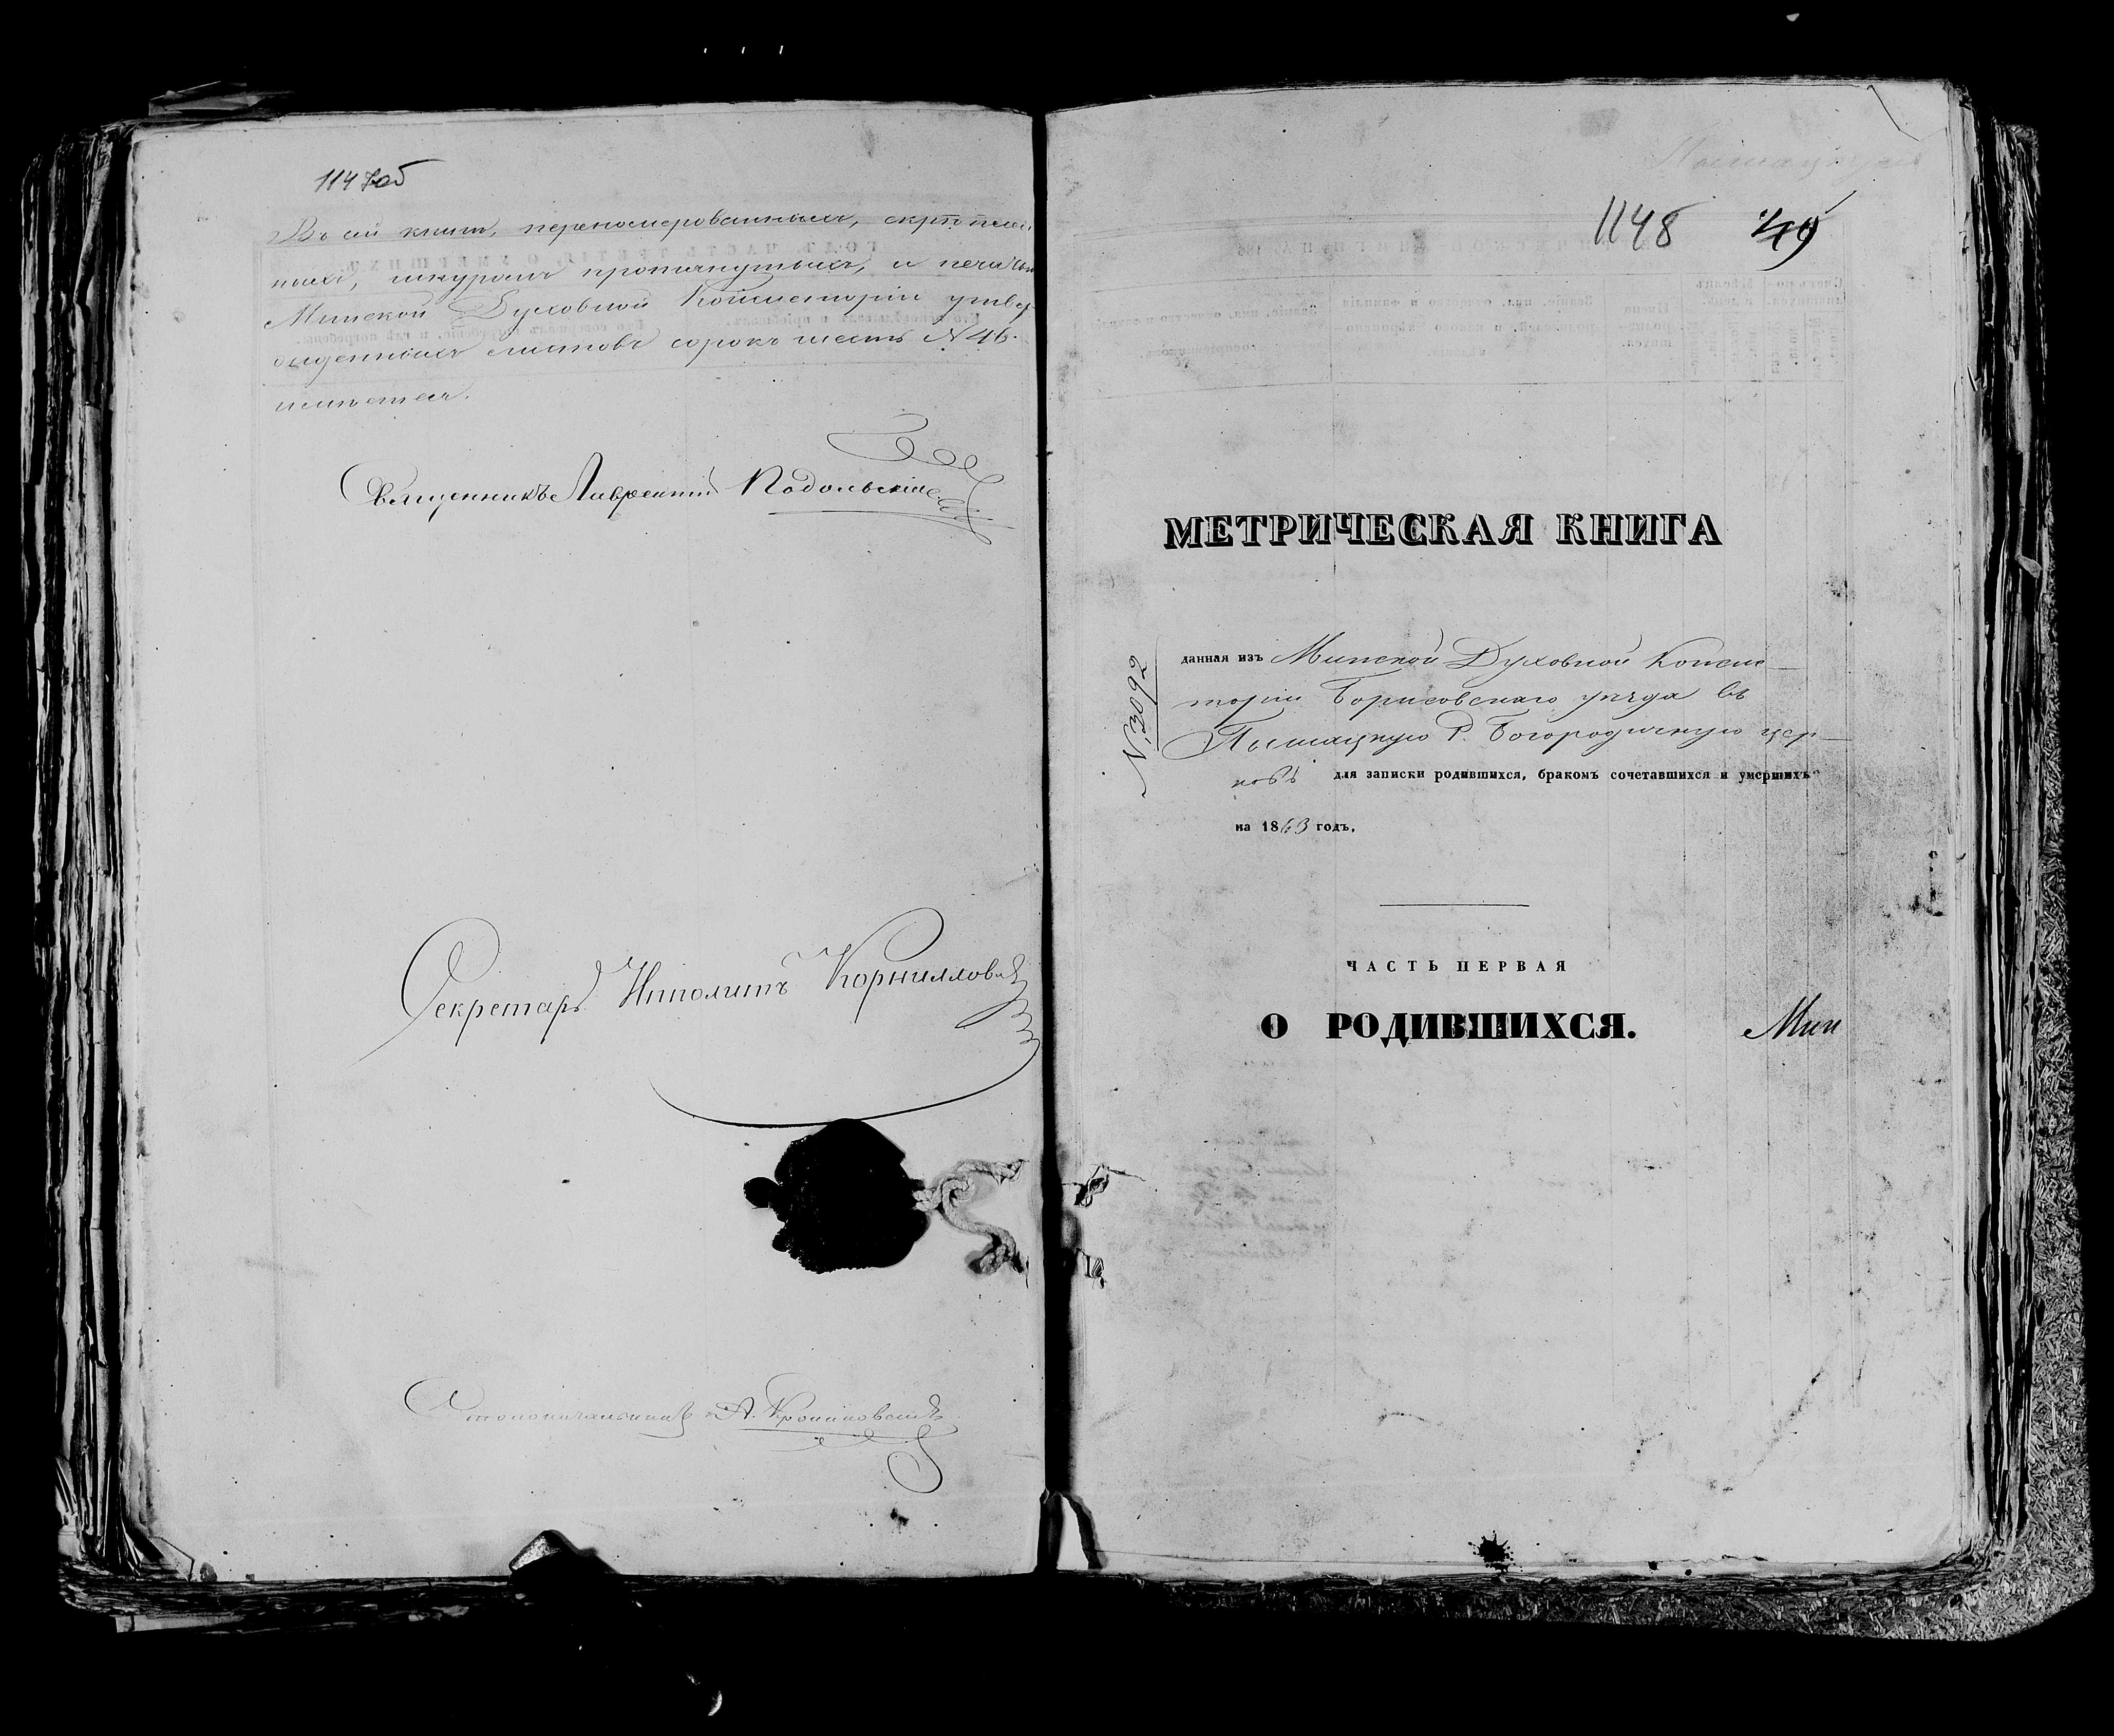 1147об
Въ сей книгѣ, перенумерованныхъ, скрѣплен-
ныхъ, шнуромъ протянутыхъ, и печатью
Минской Духовной Консисторіи утвер-
жденныхъ листовъ сорокъ шесть N 46.
имѣется.
Священникъ Лаврентій Подольскій
Секретарь Ипполитъ Корниллович
Столоначальникъ А.
1148 49
МЕТРИЧЕСКАЯ КНИГА
N. 3092
данная изъ Минской Духовной Конси-
сторіи Борисовскаго уѣзда въ
Пышацкую Р. Богородичную цер-
ковь для записки родившихся, бракомъ сочетавшихся и умершихъ
на 1863 годъ.
ЧАСТЬ ПЕРВАЯ
О РОДИВШИХСЯ.
Мин